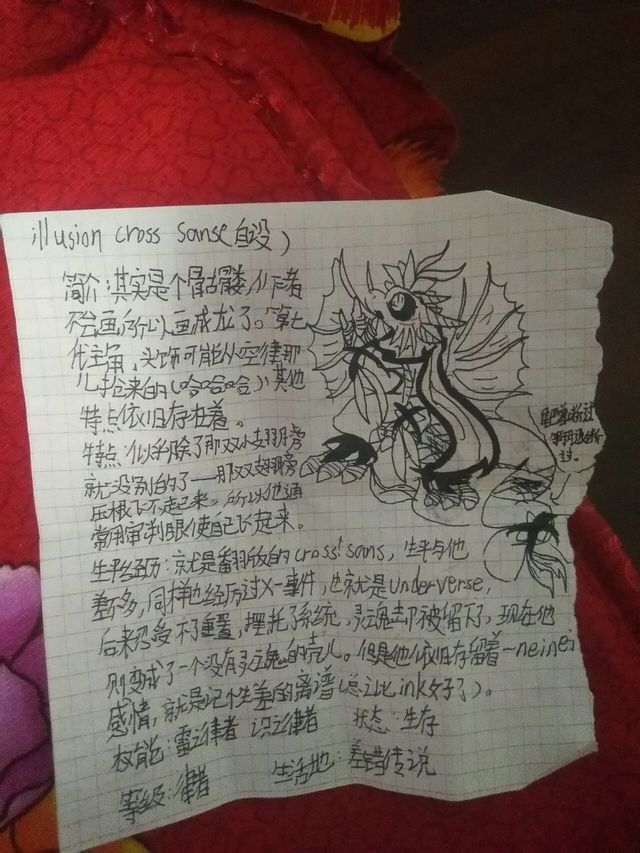 illusion cross sans(自设)
简介:其实是个骷髅,作者
不会画,所以画成龙了。第七
代主角,头饰可能从空律那
儿抢来的(哈哈哈)!其他
特点依旧存在着。
特点:似乎除了那双小翅膀
就没别的了——那双翅膀
压根飞不起来,所以他通
常用审判眼使自己飞起来。
生平经历:就是翻版的cross!sans,生平与他
差不多,同样也经历过X-事件,也就是Underverse,
后来忍受不了重置,摆托了系统,灵魂却被留下了,现在他
则变成了一个没有灵魂的壳儿。但是他依旧存留着
感情,就是记性差的离谱(总比ink好了)。
权能:雷之律者 识之律者 状态:生存
等级:律者 生活地:差错传说
过。